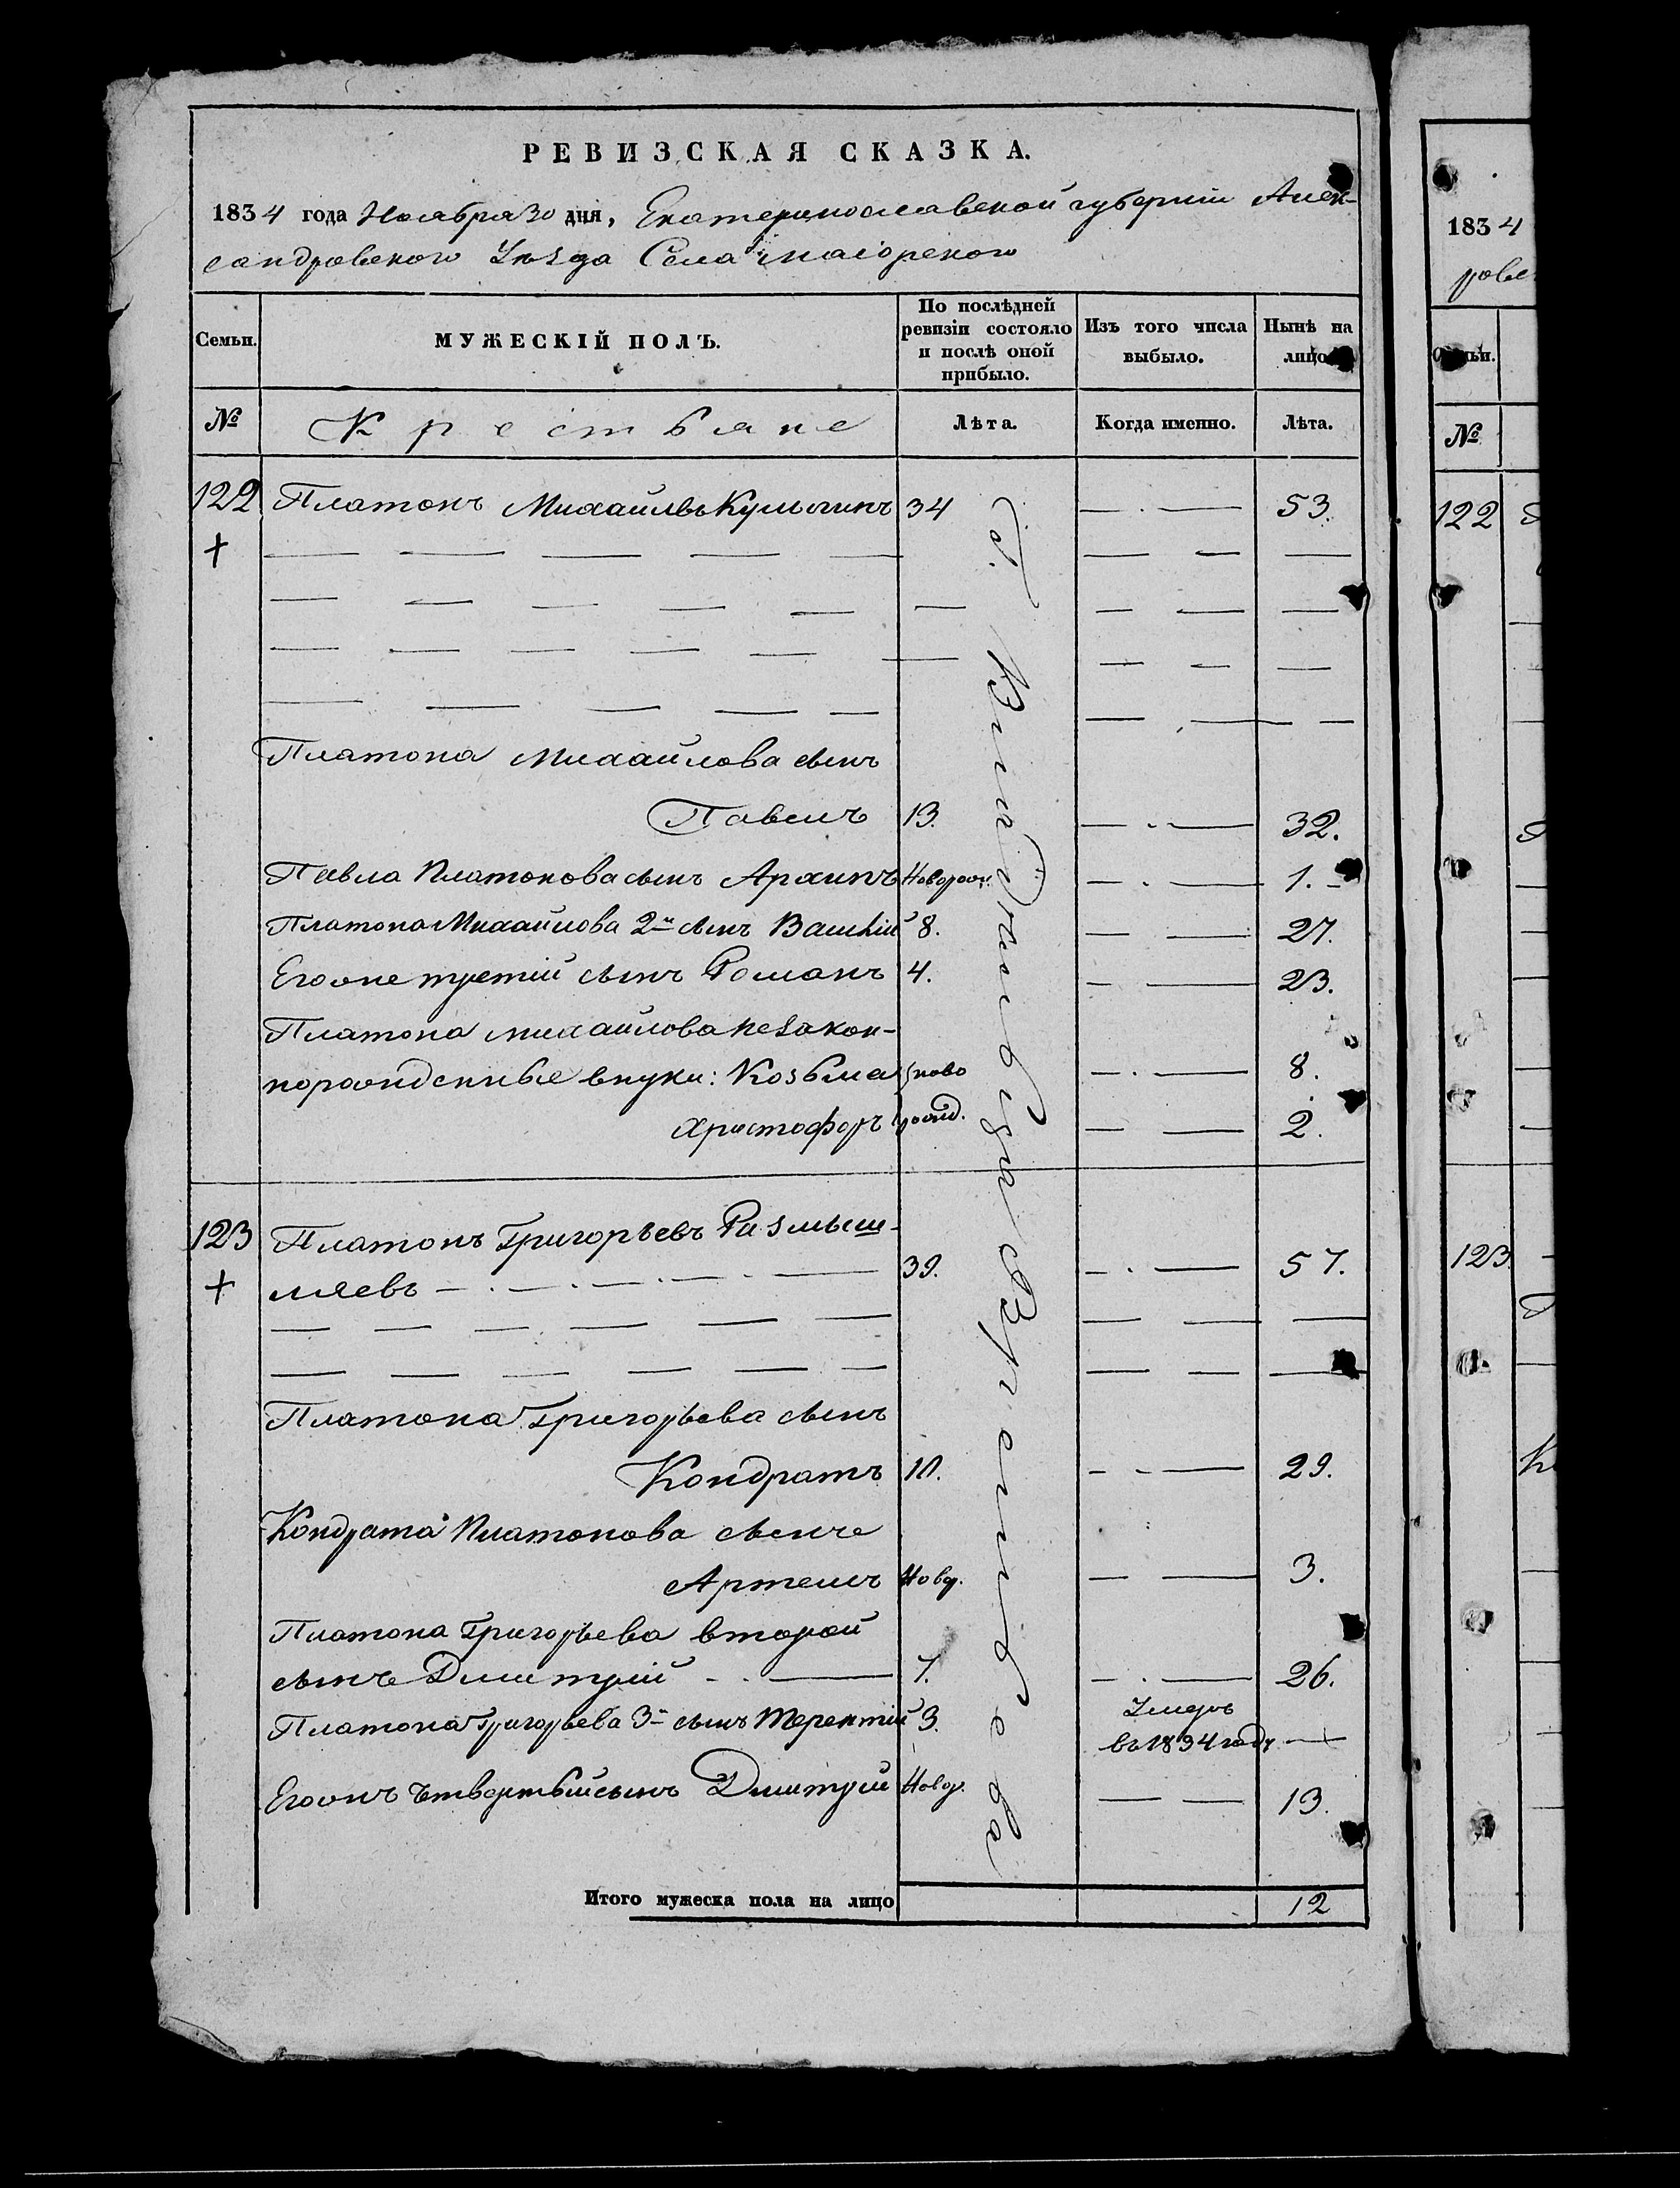 РЕВИЗСКАЯ СКАЗКА.
1834 года Ноября 30 дня, Екатеринославской губернии Алек-
сандровского Уѣзда Села Маіорского
Семьи.
МУЖЕСКІЙ ПОЛЪ.
По послѣдней ревизіи состояло и послѣ оной прибыло.
Изъ того числа выбыло.
Нынѣ на лицо
№
Крестьяне
Лѣта.
Когда именно.
Лѣта.
122 Платонъ Михайлвъ Кульчинъ 34 53.
Платона Михайлова сынъ
Павелъ 13. 32.
Павла Платонова сынъ Архипъ Наворож. 1.
Платона Михайлова 2й сынъ Василій 8. 27.
Егоже третій сынъ Романъ 4. 23.
Платона Михайлова незакон-
норожденные внуки: Козьма ново 8.
Христофоръ рожд. 2.
123 Платонъ Григорьевъ Размыш-
ляевъ 39. 57.
Платона Григорьева сынъ
Кондратъ 10. 29.
Кондрата Платонова сынъ
Артемъ Новр. 3.
Платона Григорьева второй
сынъ Дмитрій 7. 26.
Платона Григорьева 3й сынъ Терентій 3. Умеръ
въ 1834 году
Егожъ Четвертый сынъ Дмитрій Новр. 13.
Итого мужеска пола на лицо 12
1834
№
122
123